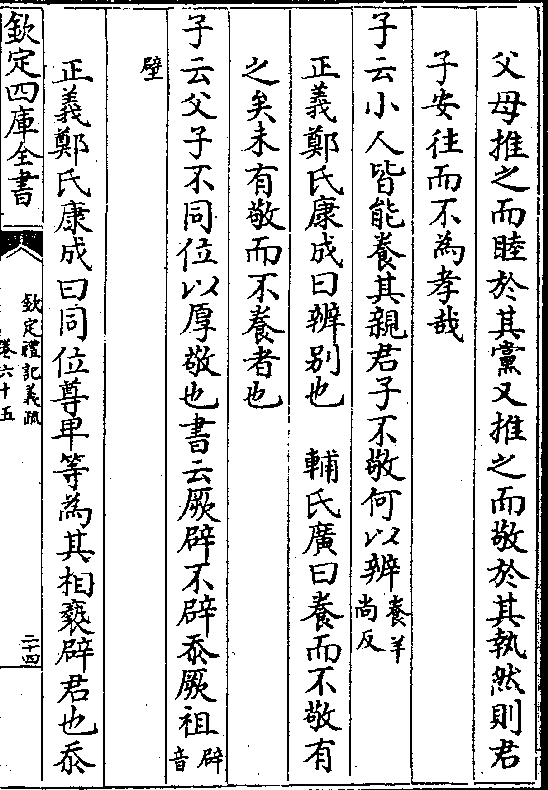 父母推之而睦於其黨又推之而敬於其執然則君
子安往而不為孝哉
子云小人皆能養其親君子不敬何以辨養羊尚反
正義鄭氏康成曰辨别也　輔氏廣曰養而不敬有
之矣未有敬而不養者也
子云父子不同位以厚敬也書云厥辟不辟忝厥祖辟音
壁
正義鄭氏康成曰同位尊卑等為其相䙝辟君也忝
欽定四庫全書
欽定禮記義疏
卷六十五
二十四